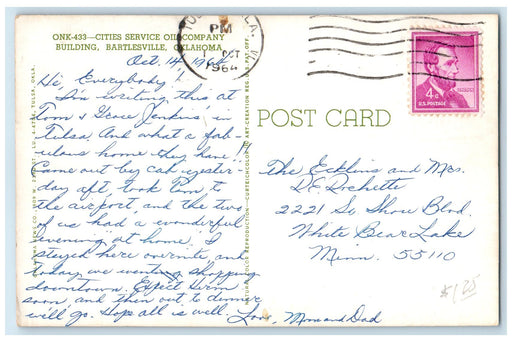 ONK-433—CITIES SERVICE OIL COMPANY
BUILDING, BARTLESVILLE, OKLAHOMA
Oct. 14, 1964
Hi, Everybody!
I'm writing this at
Tom & Grace Jenkins in
Tulsa. And what a fab-
ulous home they have!!
Came out by cab yester-
day aft, took Pem to
the airport, and the two
of us had a wonderful
evening "at home". I
stayed here overnite and
today we went shopping
downtown. Expect Herm
soon, and then out to dinner
will go. Hope all is well. Love, Mom and Dad
PM
OCT
1964
4¢
U.S. POSTAGE
POST CARD
The Ecklins and Mrs.
D.E. Rochette
2221 So Shore Blvd.
White Bear Lake
Minn. 55110
$1.25